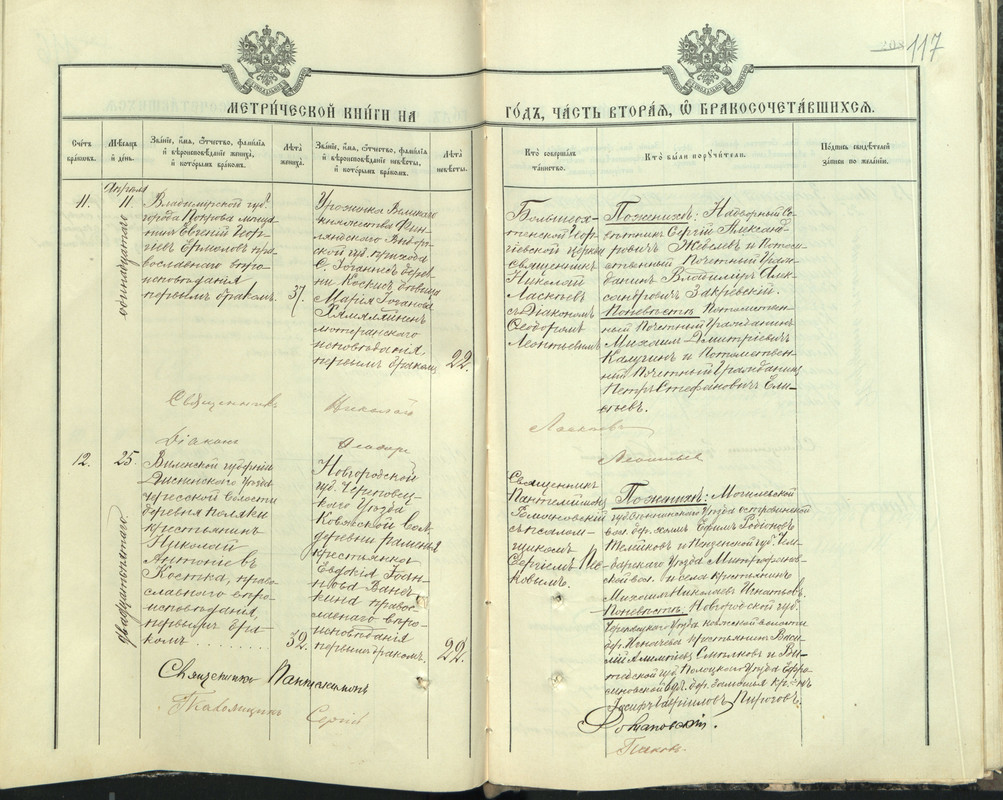 117
МЕТРИ́ЧЕСКОЙ КНИ́ГИ НА
ГО́ДЪ, ЧА́СТЬ ВТОРА́Я, Ѽ БРАКОСОЧЕТА́ВШИХСЯ.
Счетъ браковъ.
Мѣсяцъ и день.
Званіе, имя, отчество, фамилія
и вѣроисповѣданіе жениха,
и которымъ бракомъ.
Лѣта
жениха.
Званіе, имя, отчество, фамилія
и вѣроисповѣданіе невѣсты,
и которымъ бракомъ.
Лѣта
невѣсты.
Кто совершалъ
таинство.
Кто были поручители.
Подпись свидѣтелей
записи по желанію.
Апрѣля
11.
11
одиннадцатаго
Владимірской губ.
города Покрова мѣща
нинъ Евгеній Геор
гіевъ Ермоловъ пра
вославнаго вѣро
исповѣданія
первымъ бракомъ.
37.
Уроженка Великаго
княжества Фин
ляндскаго Выборг
ской губ. прихода
С. Іоганнесъ дерев
ни Коскисъ дѣвица
Марія Іоганова
Хямяляйненъ
лютеранскаго
исповѣданія,
первымъ бракомъ
22.
Большеох-
тенской Геор
гіевской церкви
священникъ
Николай
съ діакономъ
Ѳеодоромъ
Леонтьевымъ
По женихѣ: Надворный Со
вѣтникъ Сергій Алексан
дровичъ Жевелевъ и Потом
ственный Почетный Граж
данинъ Владиміръ Алек
сандровичъ Закревскій.
По невѣстѣ Потомствен
ный Почетный Гражданинъ
Михаилъ Дмитріевичъ
Калугинъ и Потомствен
ный Почетный Гражданинъ
Петръ Стефановичъ Ели-
сѣевъ.
Священникъ Николай
Діаконъ Ѳеодоръ Леонтьевъ
12.
25.
двадцать пятаго.
Виленской губерніи
Дисненскаго уѣзда
волости
деревни
крестьянинъ
Николай
Антоніевъ
Костка, право
славнаго вѣро
исповѣданія,
первымъ бра-
комъ
32.
Новгородской
губ. Череповец
каго уѣзда
вол.
деревни Раменья
крестьянка
Евдокія Іоан
нова Ванеч
кина право
славнаго вѣро
исповѣданія
первымъ бракомъ.
22.
Священникъ
Пантелеймонъ
Романовскій
съ псалом-
щикомъ
Сергіемъ Пѣ
ковымъ.
По женихѣ: Могилевской
губ. Сѣннинскаго уѣзда
вол. дер. Ефимъ Родіоновъ
и Пензенской губ. Чем
барскаго уѣзда Митрофанов
ской вол. и села крестьянинъ
Михаилъ Николаевъ Игнатовъ.
По невѣстѣ: Новгородской губ.
Череповецкаго уѣзда волости
дер. крестьянинъ Васи
лій Смѣлковъ и Ви
тебской губ. Полоцкаго уѣзда
вол. дер. Замошья кр-нъ
Іосифъ Гавриловъ Пироговъ.
Священникъ Пантелеимонъ Романовскій.
Псаломщикъ Сергій Пѣковъ.